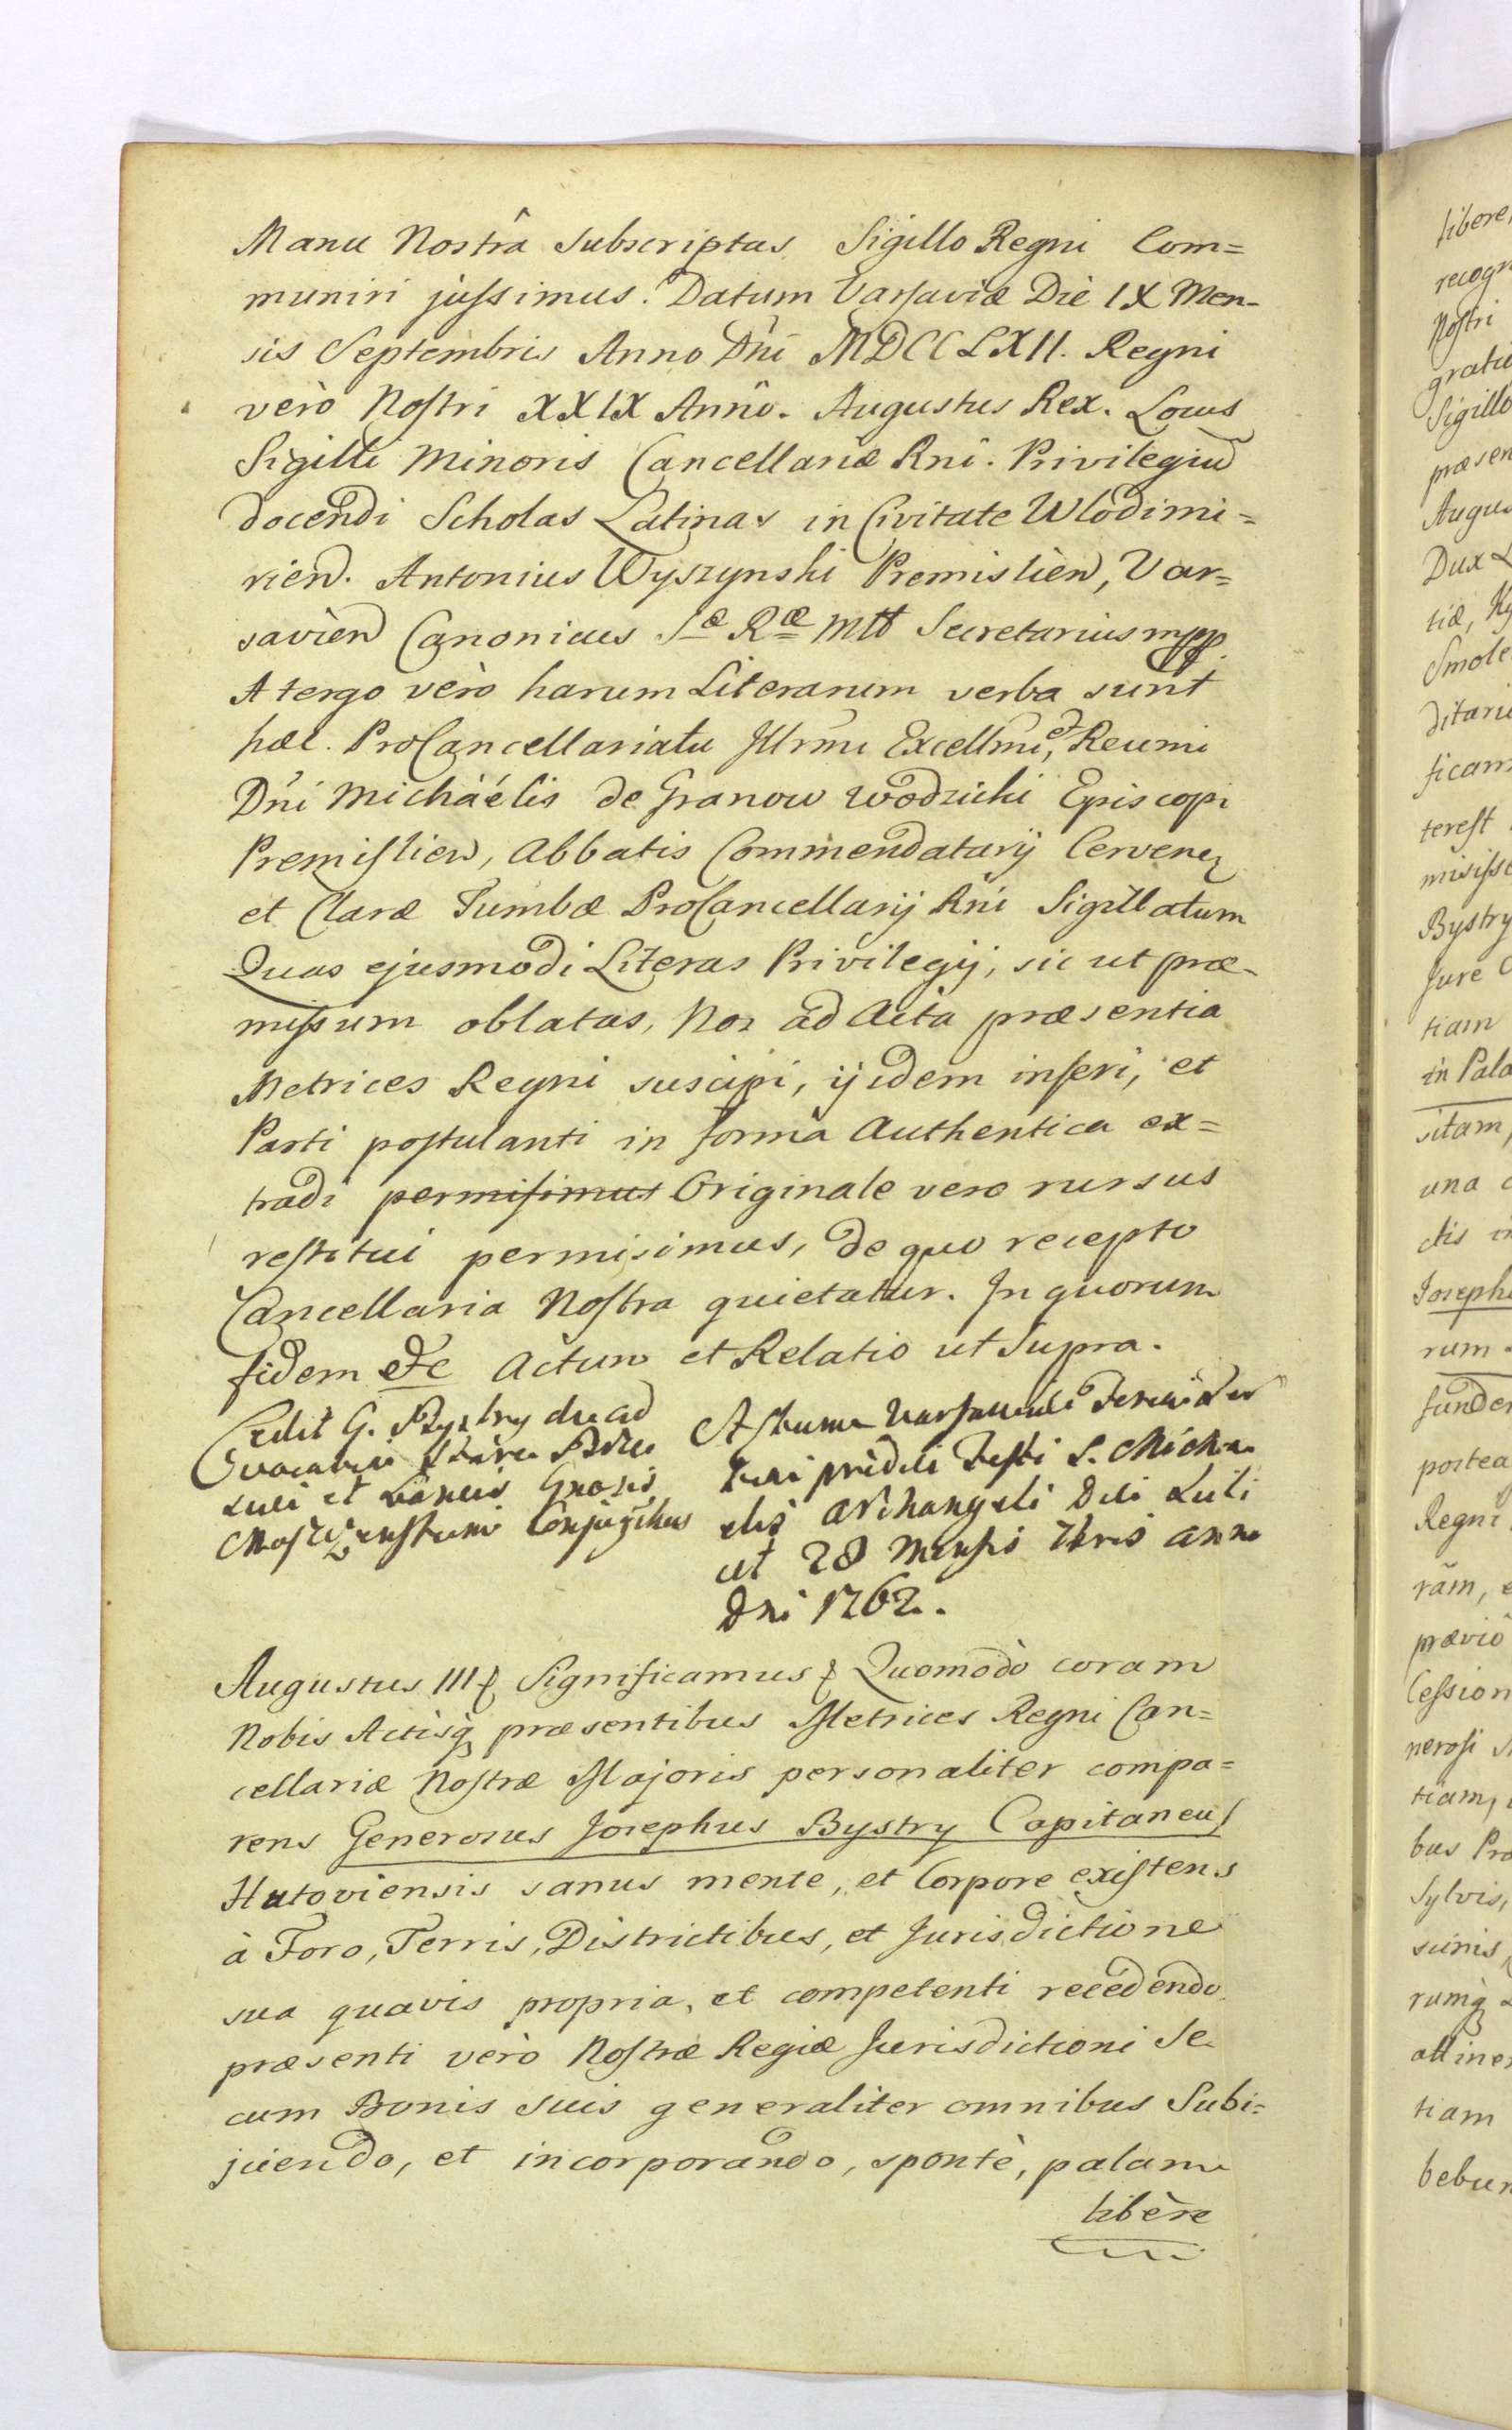 Manu Nostrâ Subscriptas Sigillo Regni Com=
muniri jussimus. Datum Varsaviæ Diè IX Men-
sis Septembris Anno Dni MDCCLXII. Regni
verò Nostri XXIX Annô. Augustus Rex. Locus
Sigilli Minoris Cancellariæ Rni. Privilegiu
docendi Scholas Latinas in Civitate Wlodimi=
rien. Antonius Wyszynski Premislien, Var=
savien Canonicus Sæ Ræ Mtt Secretarius mpp.
A tergo verò harum Literarum verba sunt
hæc. ProCancellariatu Illrmi Excellmi, et Reumi
Dni Michaélis de Granow Wodzicki Episcopi
Premislien, Abbatis Commendatarij Cervenen
et Claræ Tumbæ ProCancellarij Rni Sigillatum
Quas ejusmodi Literas Privilegij, sic ut præ-
missum oblatas, Nos ad Acta præsentia
Metrices Regni suscipi, ijsdem inseri, et
Parti postulanti in forma Authentica ex=
tradi permisimus Originale vero rursus
restitui permisimus, de quo recepto
Cancellaria Nostra quietatur. In quorum
fidem &c Actum et Relatio ut Supra.
Cedit G. Bystry
et Conjugibus
Actum Varsaviæ Feria
pridie Festi S. Micha
elis Archangeli
ut 28 Mensis 7bris Anno
Dni 1762.
Augustus III Significamus Quomodò coram
Nobis Actisq præsentibus Metrices Regni Can=
cellariæ Nostræ Majoris personaliter compa=
rens Generosus Josephus Bystry Capitaneus
Hutoviensis sanus mente, et Corpore existens
à Foro, Terris, Districtibus, et Jurisdictione
sua quavis propria, et competenti recedendo,
præsenti verò Nostræ Regiæ Jurisdictioni Se
cum Bonis suis generaliter omnibus Subi=
jiciendo, et incorporando, spontè, palam
libère
libere,
recogn
Nostri
gratie
Sigillo
præsen
Augus
Dux L
tiæ,
Smole
ditari
ficam
terest
misisse
Bystry
Jure
tiam
in Pala
sitam,
una
ctis in
Joseph
rum
funde
postea
Regni
ram,
prævio
Cession
nerosi
tiam,
bus Pro
Sylvis,
rumq
attine
tiam
bebun